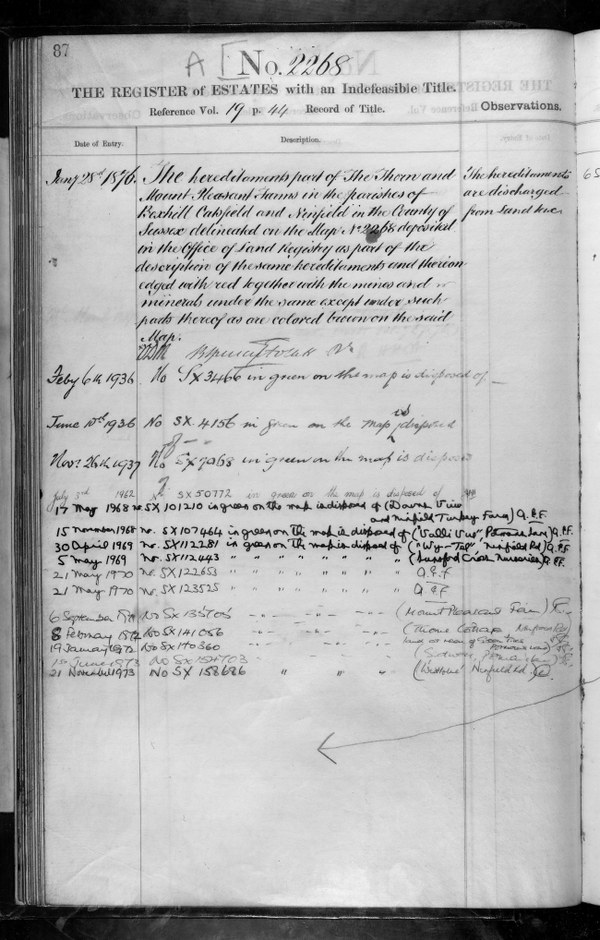 87
A [ No. 2268
THE REGISTER of ESTATES with an Indefeasible Title.
Reference Vol. 19 p. 44 Record of Title. Observations.
Date of Entry. Description.
Jany 28th 1876. The hereditaments part of The Thorn and The hereditaments
Mount Pleasant Farms in the parishes of are discharged
Bexhill Catsfield and Ninfield in the County of from Land tax
Sussex delineated on the Map No 2268 deposited
in the Office of Land Registry as part of the
description of the same hereditaments and thereon
edged with red together with the mines and
minerals under the same except under such
parts thereof as are colored brown on the said
Map.
Feby 6th 1936 No SX3466 in green on the map is disposed of —
June 10th 1936 No SX. 4156 in green on the map is disposed
of —
Novr 26th 1937 No SX9068 in green on the map is disposed
of
July 3rd 1962 No SX 50772 in green on the map is disposed of
17 May 1968 no SX 101210 in green on the map is disposed of (Downs View
and Ninfield Turkey Farm) Q.F.F.
15 November 1968 no. SX107464 in green on the map is disposed of ("Valli Vue" Farm) Q.F.F.
30 April 1969 no. SX112281 in green on the map is disposed of ("Wy-Tel" Ninfield Rd) Q.F.F.
5 May 1969 no. SX112443 " " " " " " " (Lunsford Cross Nurseries) Q.F.F.
21 May 1970 no. SX122653 " " " " " " " Q.F.F
21 May 1970 no. SX123525 " " " " " " " Q.F.F
6 September No SX (Mount Pleasant Farm)
8 February 1972 No SX141056 (Thorne Cottage Ninfield Rd)
19 January 1972 No SX140360 land at rear of
1973 No SX154703
21 November 1973 No SX 158686 " " " ( Ninfield Rd.)